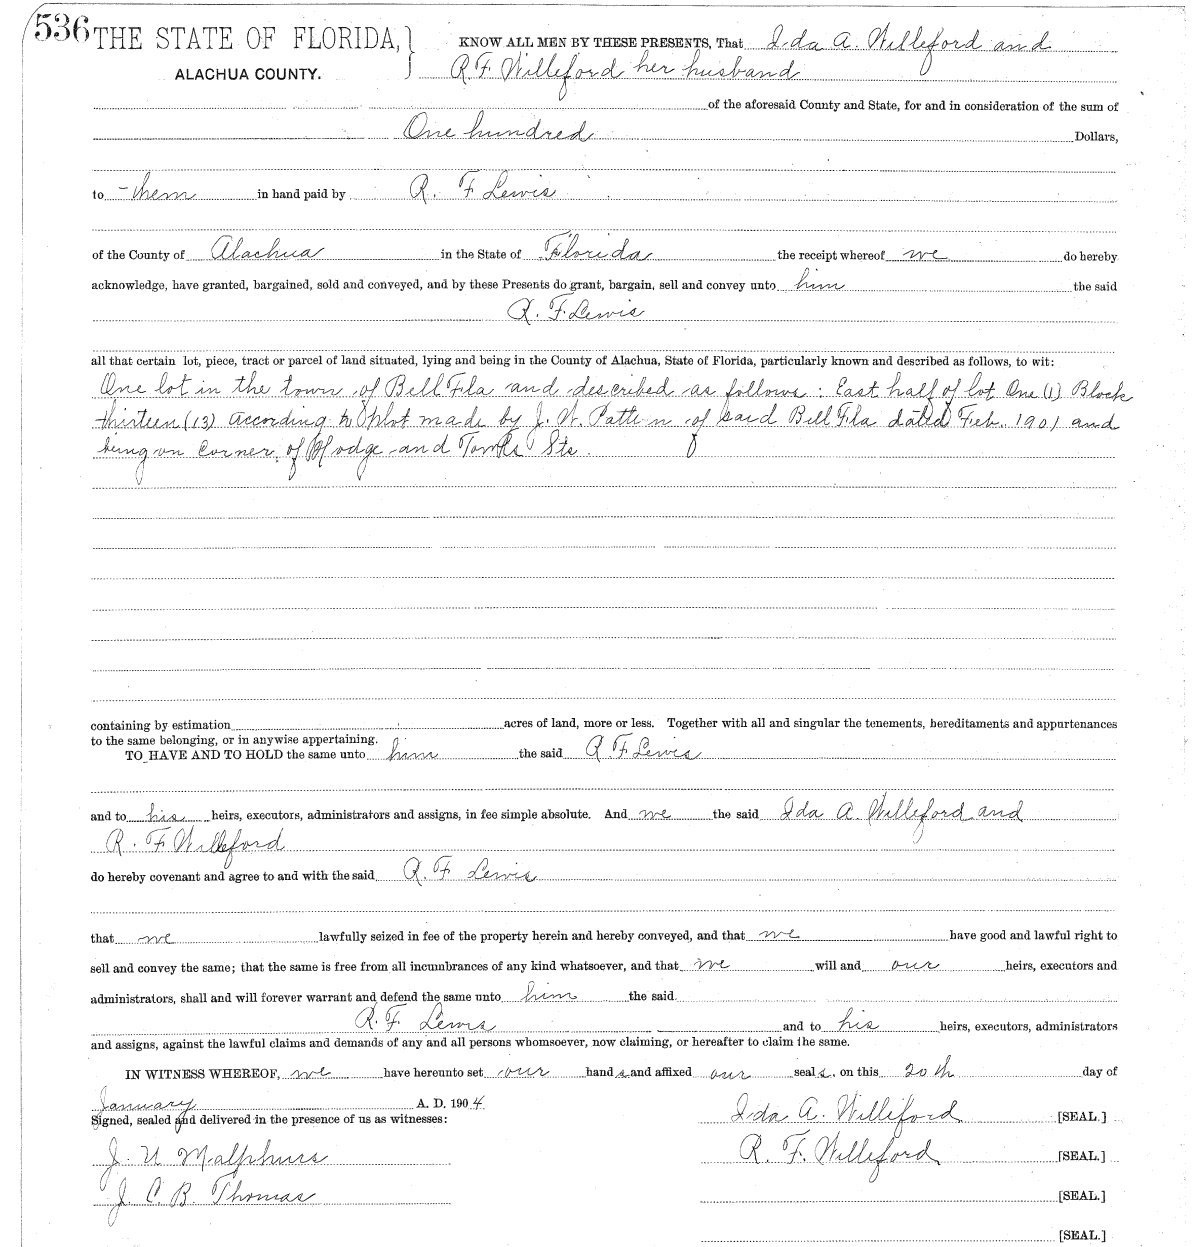 536 THE STATE OF FLORIDA, } KNOW ALL MEN BY THESE PRESENTS, That Ida A. Willeford and
ALACHUA COUNTY. R F Willeford her husband
of the aforesaid County and State, for and in consideration of the sum of
One hundred Dollars,
to them in hand paid by R. F Lewis
of the County of Alachua in the State of Florida the receipt whereof we do hereby
acknowledge, have granted, bargained, sold and conveyed, and by these Presents do grant, bargain, sell and convey unto him the said
R. F. Lewis
all that certain lot, piece, tract or parcel of land situated, lying and being in the County of Alachua, State of Florida, particularly known and described as follows, to wit:
One lot in the town of Bell Fla and described as follows: East half of lot One (1) Block
thirteen (13) According to plot made by J. W. of said Bell Fla dated Feb. 1901 and
being on Corner of Hodge and Sts.
containing by estimation acres of land, more or less. Together with all and singular the tenements, hereditaments and appurtenances
to the same belonging, or in anywise appertaining.
TO HAVE AND TO HOLD the same unto him the said R F Lewis
and to his heirs, executors, administrators and assigns, in fee simple absolute. And we the said Ida A. Willeford and
R. F Willeford
do hereby covenant and agree to and with the said R. F Lewis
that we lawfully seized in fee of the property herein and hereby conveyed, and that we have good and lawful right to
sell and convey the same; that the same is free from all incumbrances of any kind whatsoever, and that we will and our heirs, executors and
administrators, shall and will forever warrant and defend the same unto him the said
R. F. Lewis and to his heirs, executors, administrators
and assigns, against the lawful claims and demands of any and all persons whomsoever, now claiming, or hereafter to claim the same.
IN WITNESS WHEREOF, we have hereunto set our hands and affixed our seals, on this 20th day of
January A. D. 1904
Signed, sealed and delivered in the presence of us as witnesses: Ida A. Williford [SEAL.]
J. U Malphurs R. F. Willeford [SEAL.]
J. C. B Thomas [SEAL.]
[SEAL.]